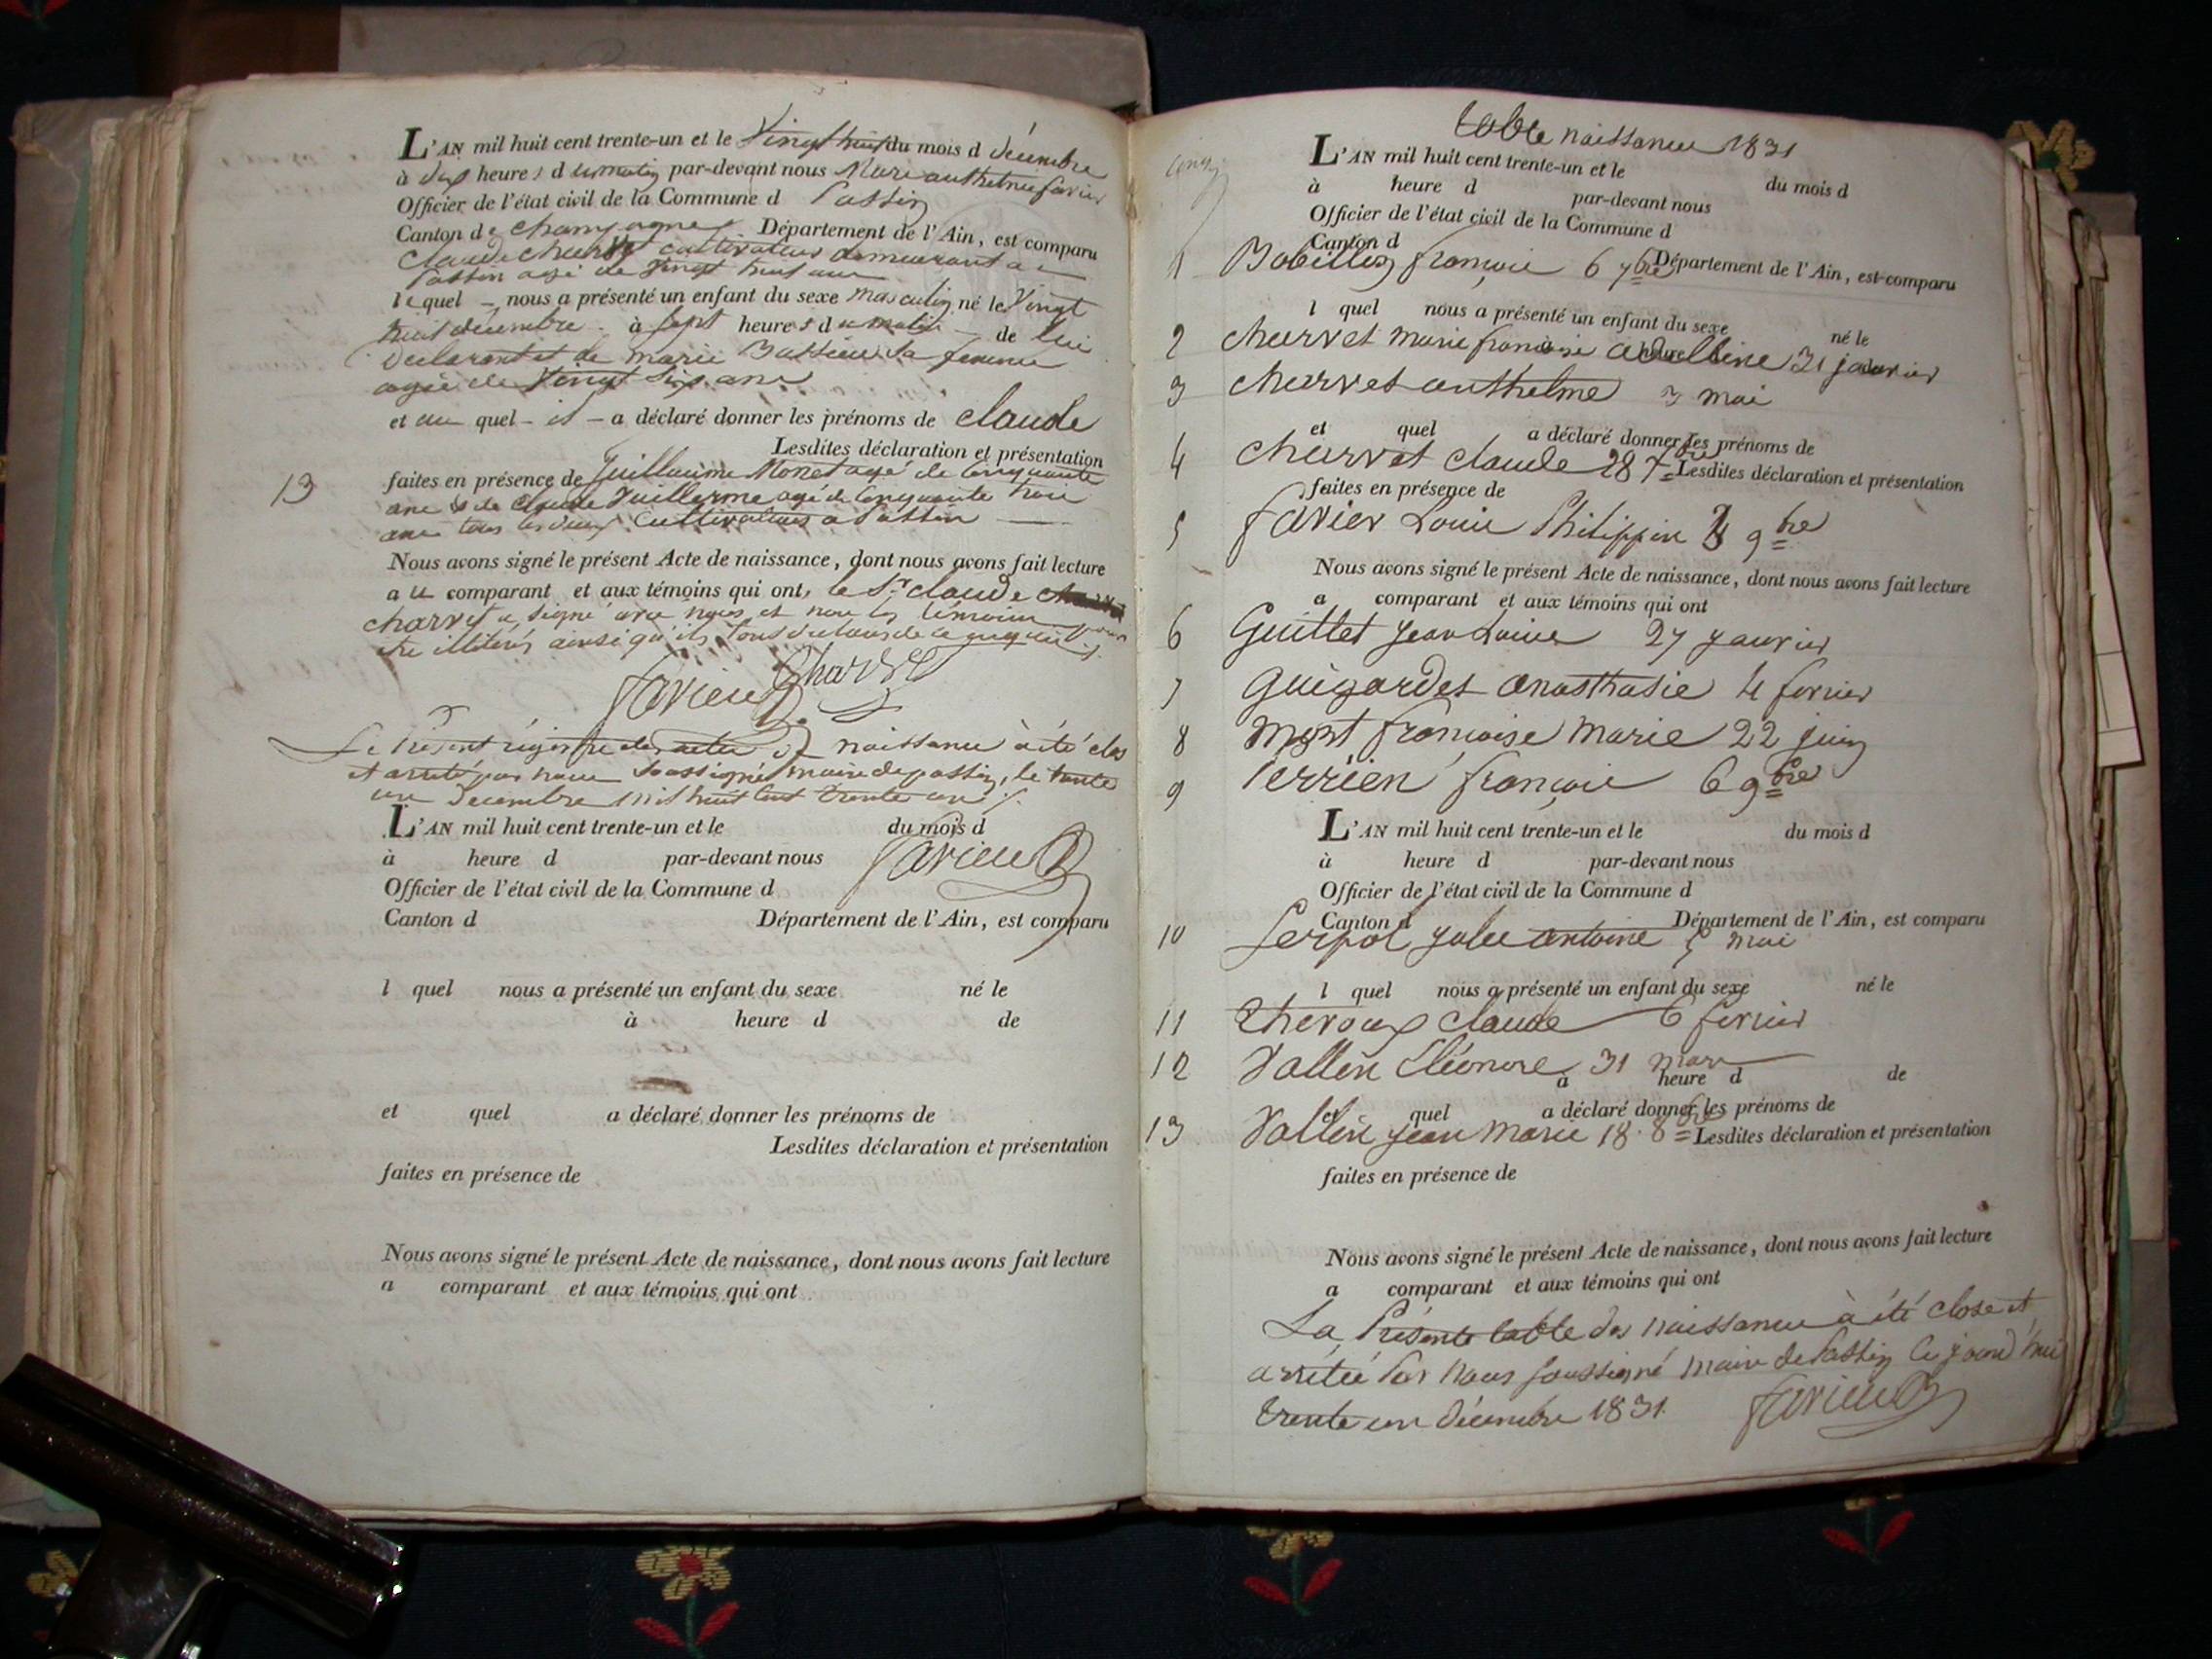 L'AN mil huit cent trente-un et le Vingt huit du mois d décembre
à dix heures du matin par-devant nous Marie anthelme favier
Officier de l'état civil de la Commune d Passin
Canton de Champagne Département de l'Ain, est comparu
Claude Charvet cultivateur demeurant a
Passin agé de Vingt huit ans
lequel nous a présenté un enfant du sexe masculin né le Vingt
huit décembre à sept heures du matin de lui
déclarant et de marie Bassieu sa femme
agée de Vingt six ans
et au quel - il - a déclaré donner les prénoms de claude
Lesdites déclaration et présentation
13 faites en présence de Guillaume Monet agé de Cinquante
ans & de Claude Vuillerme agé de Cinquante trois
ans tous les deux Cultivateurs a Passin
Nous avons signé le présent Acte de naissance, dont nous avons fait lecture
au comparant et aux témoins qui ont, le Sr claude
charvet a signé avec nous et non les témoins pour
être illiterés ainsi qu'ils
Charvet
favier
Le présent régistre des actes de naissance à été clos
et arrêté par nous soussigné maire de passin, le trente
un Decembre mil huit cent trente un
L'AN mil huit cent trente-un et le du mois d
à heure d par-devant nous favier
Officier de l'état civil de la Commune d
Canton d Département de l'Ain, est comparu
l quel nous a présenté un enfant du sexe né le
à heure d de
et quel a déclaré donner les prénoms de
Lesdites déclaration et présentation
faites en présence de
Nous avons signé le présent Acte de naissance, dont nous avons fait lecture
a comparant et aux témoins qui ont
table naissance 1831
L'AN mil huit cent trente-un et le du mois d
à heure d par-devant nous
Officier de l'état civil de la Commune d
Canton d Département de l'Ain, est comparu
1 Bobillon françois 6 7bre
l quel nous a présenté un enfant du sexe né le
2 charvet marie françoise adelline 31 janvier
heure
3 charvet anthelme 3 mai
et quel a déclaré donner les prénoms de
4 charvet claude 28 Xbre Lesdites déclaration et présentation
faites en présence de
5 favier Louis Philippin 9bre
Nous avons signé le présent Acte de naissance, dont nous avons fait lecture
a comparant et aux témoins qui ont
6 Guillet Jean Louis 27 Janvier
7 Guigardet anasthasie 4 fevrier
8 Mont françoise Marie 22 juin
9 Perrien françois 6 9bre
L'AN mil huit cent trente-un et le du mois d
à heure d par-devant nous
Officier de l'état civil de la Commune d
Canton d Département de l'Ain, est comparu
10 Serpol Jule antoine 5 mai
l quel nous a présenté un enfant du sexe né le
11 Theroux claude 6 fevrier
12 Vallin Eléonore 31 mars
à heure d de
et quel a déclaré donner les prénoms de
13 Vallin Jean Marie 18. 8bre Lesdites déclaration et présentation
faites en présence de
Nous avons signé le présent Acte de naissance, dont nous avons fait lecture
a comparant et aux témoins qui ont
La Présente table des naissance à été close et
arrêtée Par Nous soussigné maire de Passin ce jourd'hui
trente un décembre 1831.
favier